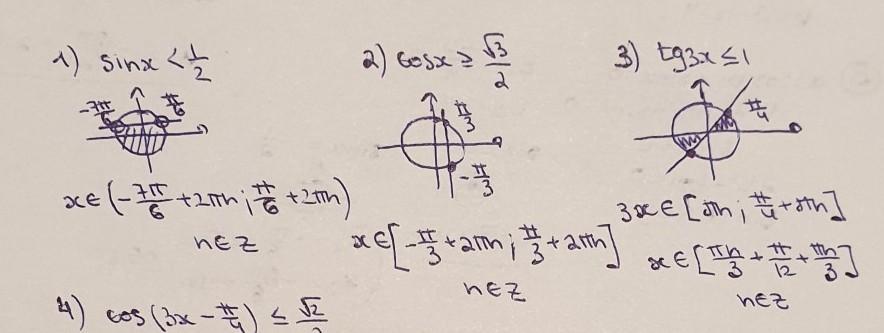 1) sinx < 1/2
-7π/6 π/6
x∈(-7π/6 + 2πn; π/6 + 2πn)
n∈Z
2) cosx ≥ √3/2
π/3
-π/3
x∈[-π/3 + 2πn; π/3 + 2πn]
n∈Z
3) tg3x ≤ 1
π/4
3x∈[πn; π/4 + πn]
x∈[πn/3 + π/12 + πn/3]
n∈Z
4) cos(3x - π/4) ≤ √2/2